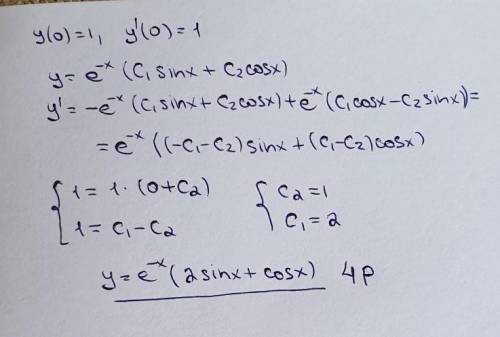 y(0)=1, y'(0)=1
y = e^-x (C₁ sinx + C₂ cosx)
y' = -e^-x (C₁ sinx + C₂ cosx) + e^-x (C₁ cosx - C₂ sinx) =
= e^-x ((-C₁ - C₂) sinx + (C₁ - C₂) cosx)
{ 1 = 1 · (0 + C₂) { C₂ = 1
1 = C₁ - C₂ C₁ = 2
y = e^-x (2 sinx + cosx) 4p